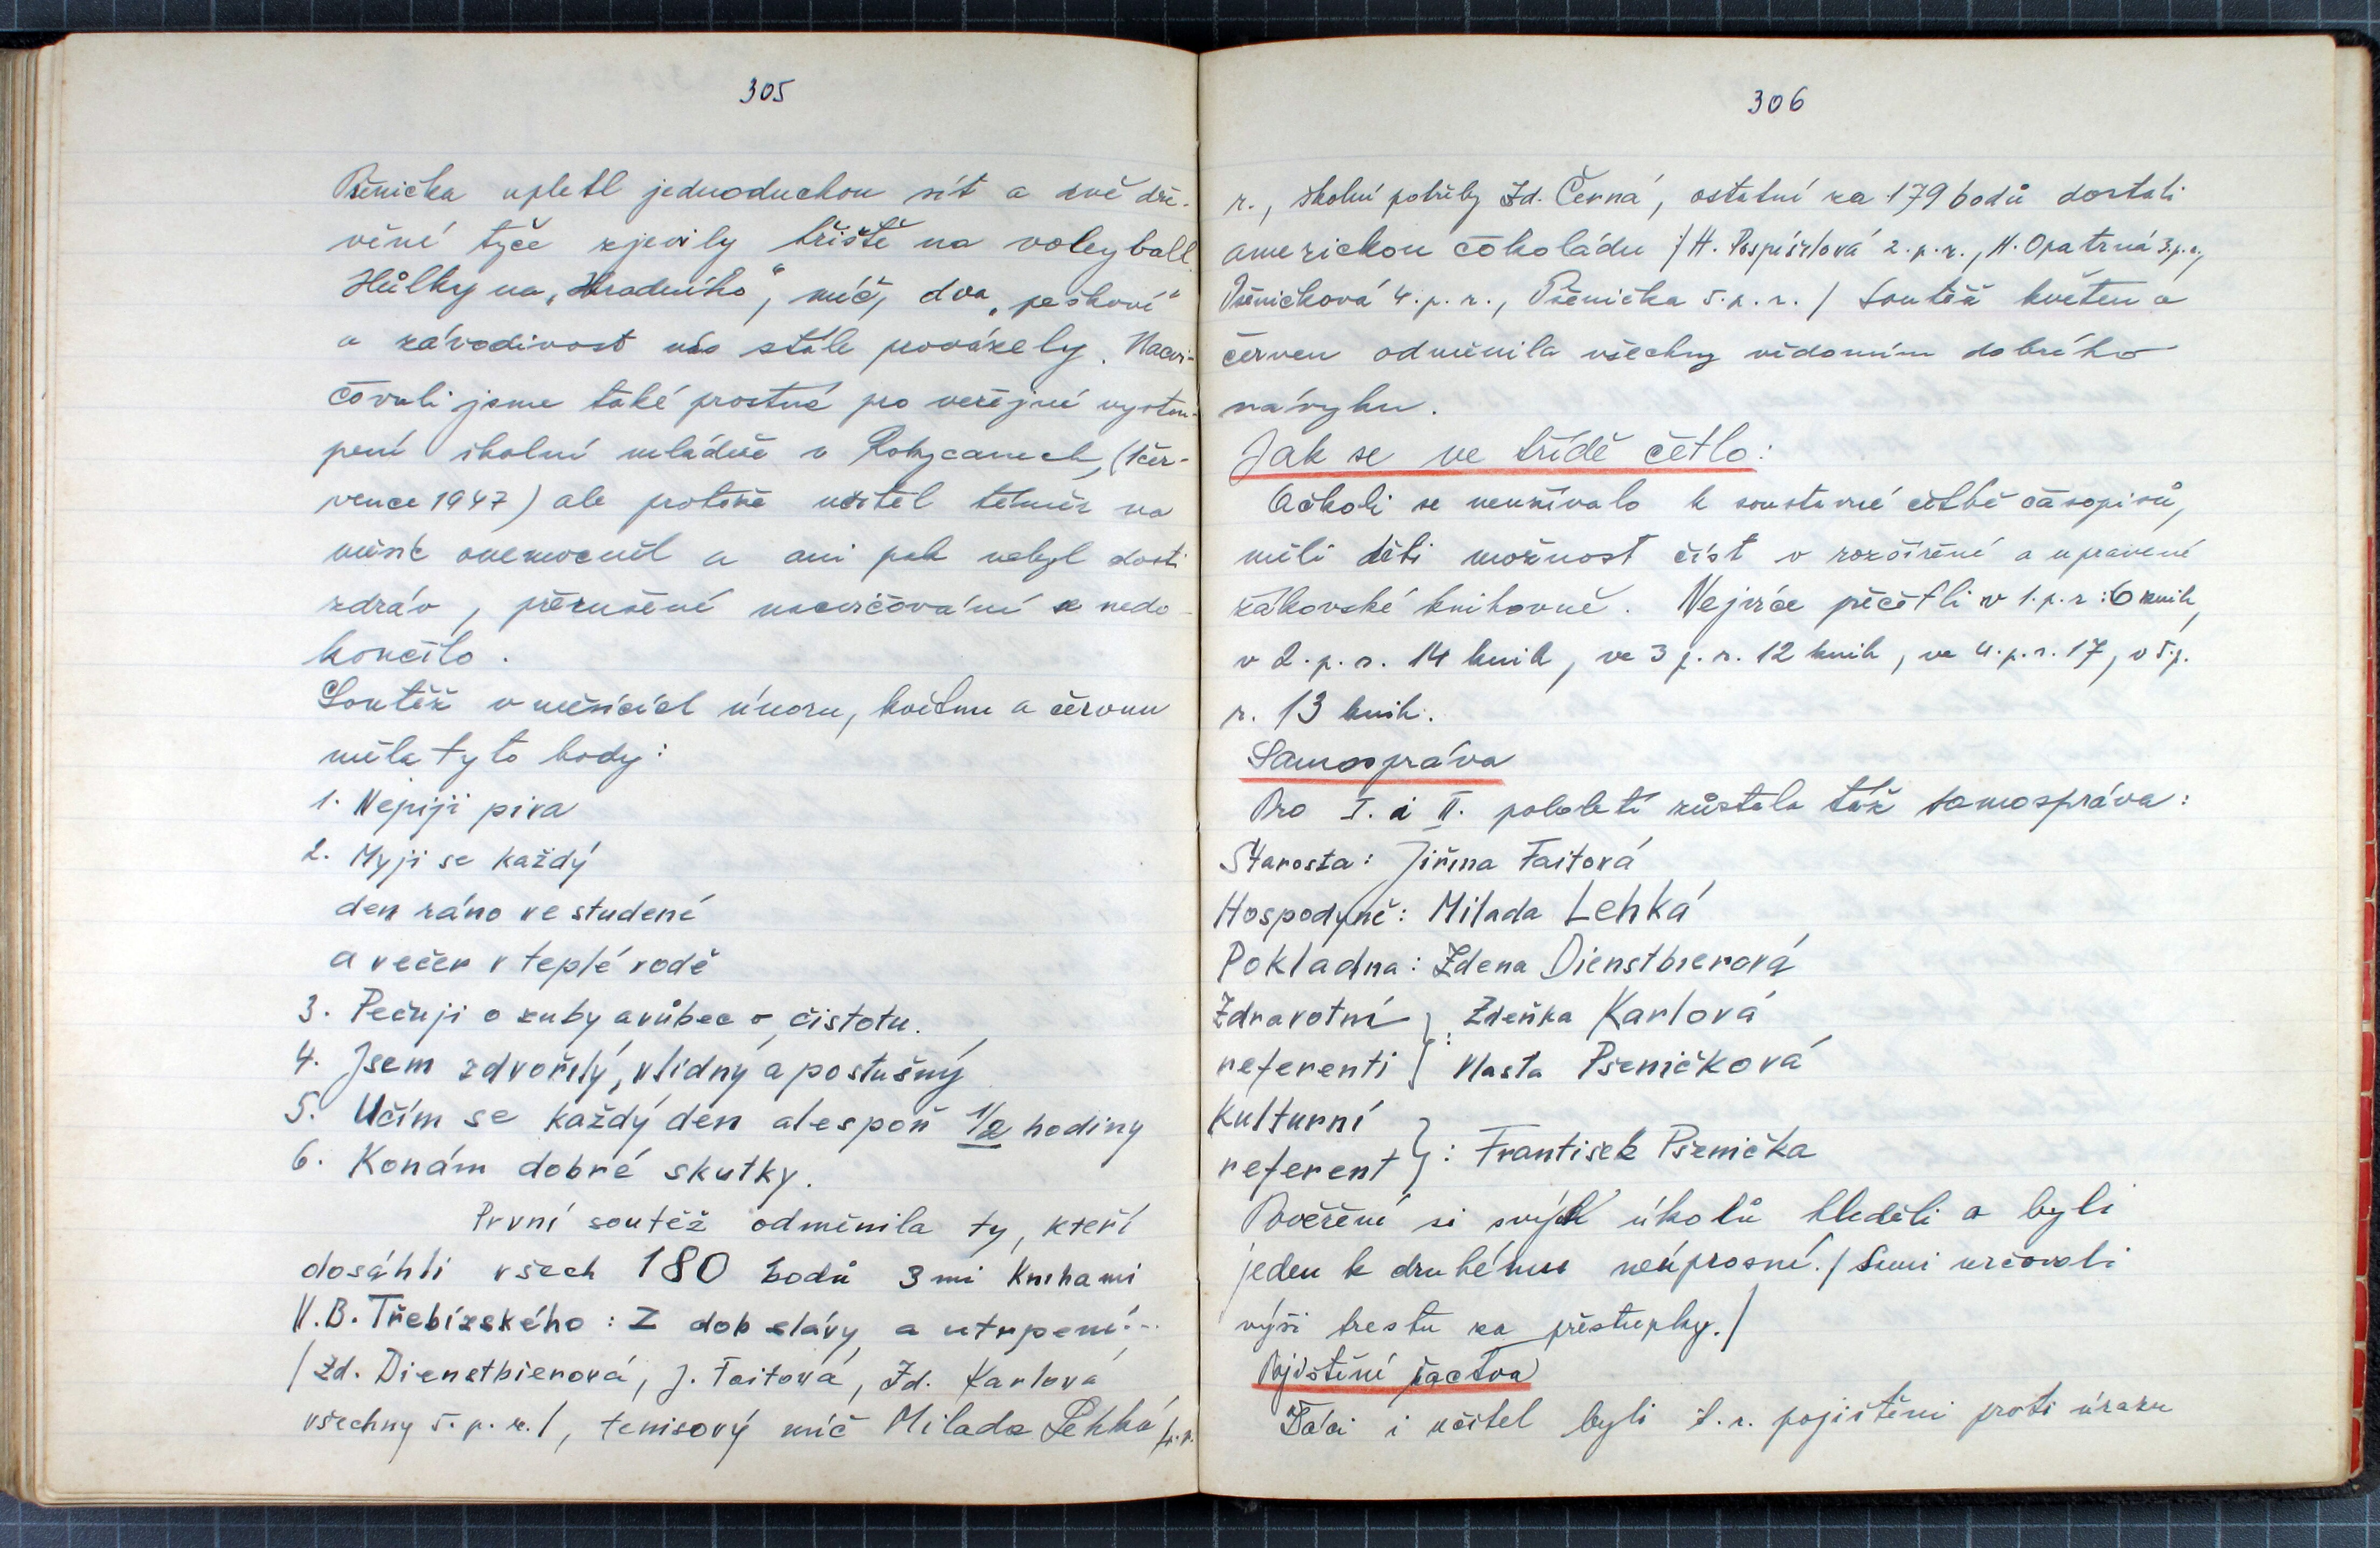 305
Pšenička upletl jednoduchou síť a dvě dře-
věné tyče zjevily hřiště na voleyball.
Hůlky na „Hradního“, míč, dva „peškové“
a závodivost nás stále provázely. Nacvi-
čovali jsme také prostné pro veřejné vystou-
pení školní mládeže v Rokycanech, (1čer-
vence 1947) ale protože učitel téměř na
měsíc onemocněl a ani pak nebyl dosti
zdráv, přerušené nacvičování se nedo-
končilo.
Soutěž v měsících únoru, květnu a červnu
měla tyto body:
1. Nepiji piva
2. Myji se každý
den ráno ve studené
a večer v teplé vodě
3. Pečuji o zuby a vůbec o čistotu.
4. Jsem zdvořilý, vlídný a poslušný
5. Učím se každý den alespoň 1/2 hodiny
6. Konám dobré skutky.
První soutěž odměnila ty, kteří
dosáhli všech 180 bodů 3mi knihami
V.B. Třebízského: Z dob slávy a utrpení...
/Zd. Dienstbierová, J. Faitová, Zd. Karlová
všechny 5. p. r./, tenisový míč Milada Lehká p.
306
r., školní potřeby Zd. Černá, ostatní za 179 bodů dostali
americkou čokoládu /H. Pospíšilová 2. p. r., H. Opatrná 3.p.r.,
Pšeničková 4. p. r., Pšenička 5. p. r./ Soutěž květen a
červen odměnila všechny vědomím dobrého
návyku.
Jak se ve třídě četlo:
Ačkoli se neužívalo k soustavné četbě časopisů,
měli děti možnost číst v rozšířené a upravené
žákovské knihovně. Nejvíce přečetli v 1. p. r: 6 knih,
v 2. p. r. 14 knih, ve 3 p. r. 12 knih, ve 4. p. r. 17, v 5.p.
r. 13 knih.
Samospráva
Pro I. i II. pololetí zůstala táž samospráva:
Starosta: Jiřina Faitová
Hospodyně: Milada Lehká
Pokladna: Zdena Dienstbierová
Zdravotní } : Zdeňka Karlová
referenti } Vlasta Pšeničková
Kulturní
referent } : František Pšenička
Pověření si svých úkolů hleděli a byli
jeden k druhému neúprosní. /Sami určovali
výši trestu za přestupky./
Pojištění žactva
Žáci i učitel byli t. r. pojištěni proti úrazu